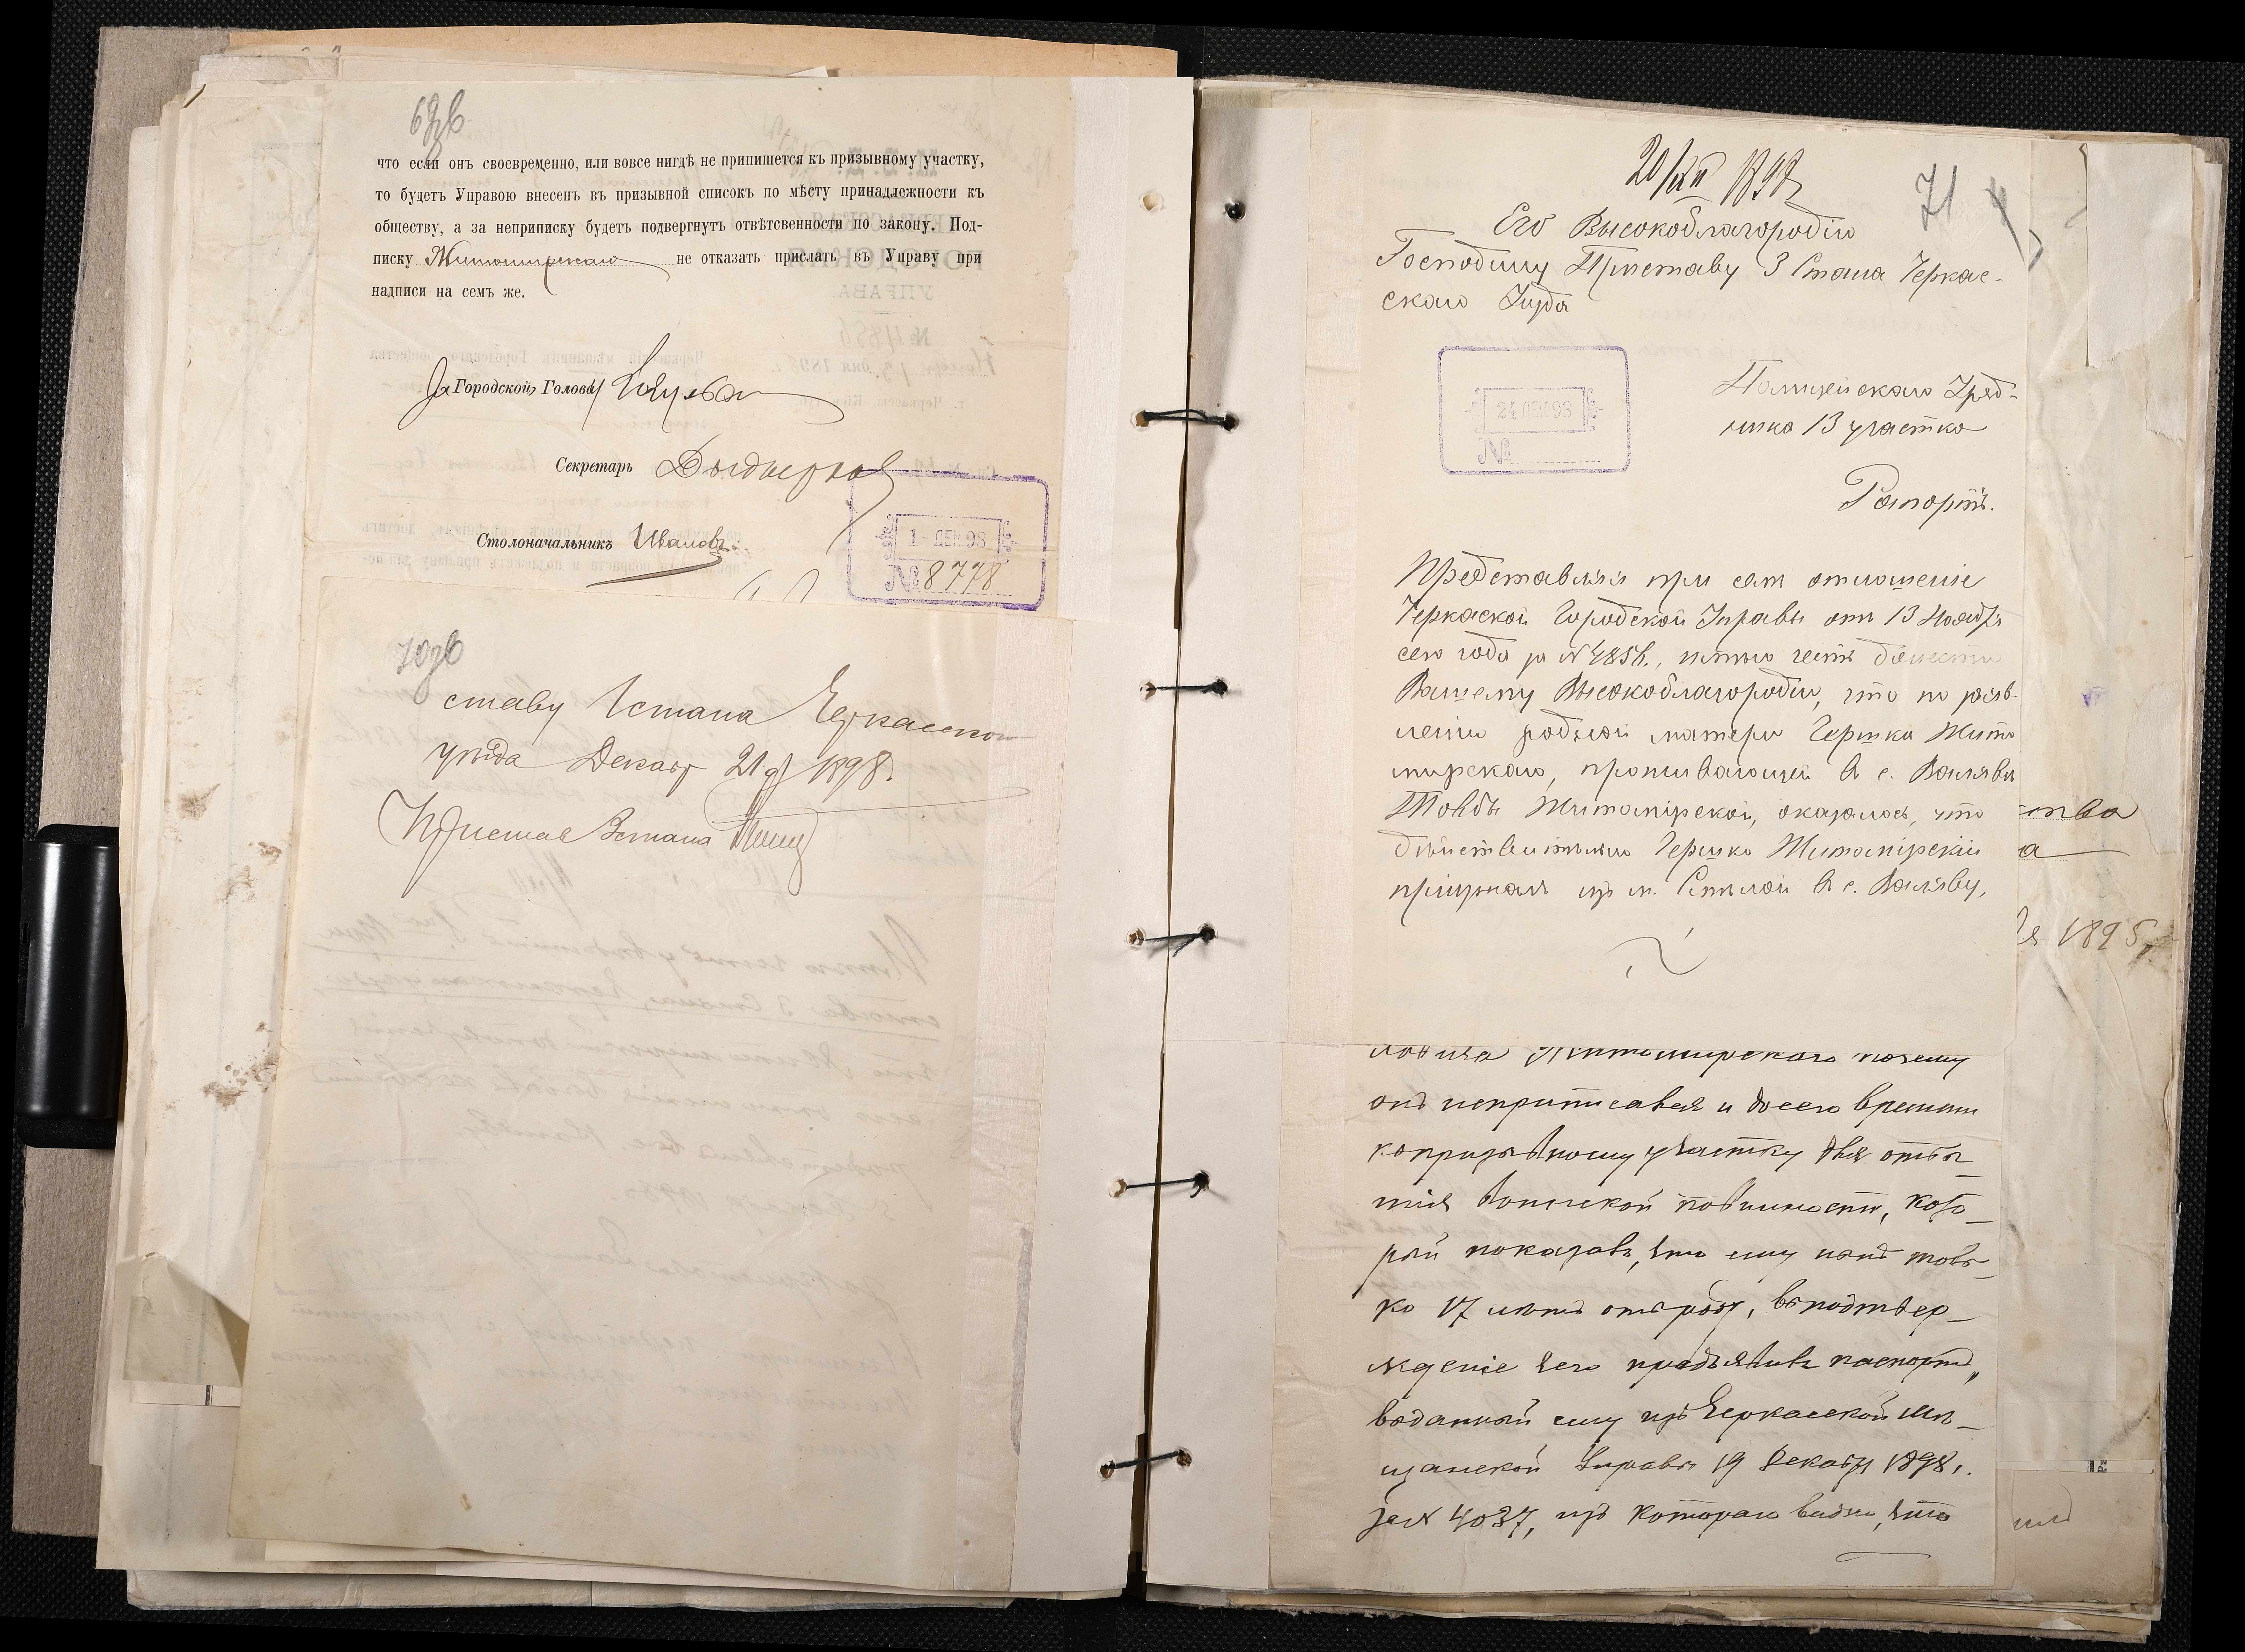 69об
что если онъ своевременно, или вовсе нигдѣ не припишется къ призывному участку,
то будетъ Управою внесенъ въ призывной списокъ по мѣсту принадлежности къ
обществу, а за неприписку будетъ подвергнутъ отвѣтсвенности по закону. Под-
писку Житомирскаго не отказать прислать въ Управу при
надписи на семъ же.
За Городской Голова
Секретарь
Столоначальникъ Ивановъ
1 - ДЕК 98
№ 8778
70об
ставу 1 стана Черкасскаго
уѣзда Декабр 21 д 1898 г.
Приставъ 3 стана
20/XII 1898 г
71
Его Высокоблагородію
Господину Приставу 3 Стана Черкас-
скаго Уѣзда
24 ДЕК 98
№
Полицейскаго Уряд-
ника 13 участка
Рапортъ.
Представляя при семъ отношеніе
Черкаской Городской Управы отъ 13 Ноября
сего года за № 4856., имѣю честь донести
Вашему Высокоблагородію, что по заяв-
ленію родной матери Гершка Жито
мирскаго, проживающей въ с. Валявѣ
Товбы Житомірской, оказалось, что
дѣйствительно Гершко Житомірскій
пріѣзжалъ изъ м. Смѣлой въ с. Валяву,
Житомирскаго почему
онъ неприписався и досего времени
копризывному участку для отбы-
тія воинской повинности, кото-
рый показавъ, что ему нынѣ толь-
ко 17 лѣтъ отъ роду, въ подтвер-
жденіе чего предъявивъ паспортъ,
выданный ему изъ Черкасской Мѣ-
щанской Управы 19 Декабря 1898 г.
за № 4037, изъ котораго видно, что
ства
а
1895 г.